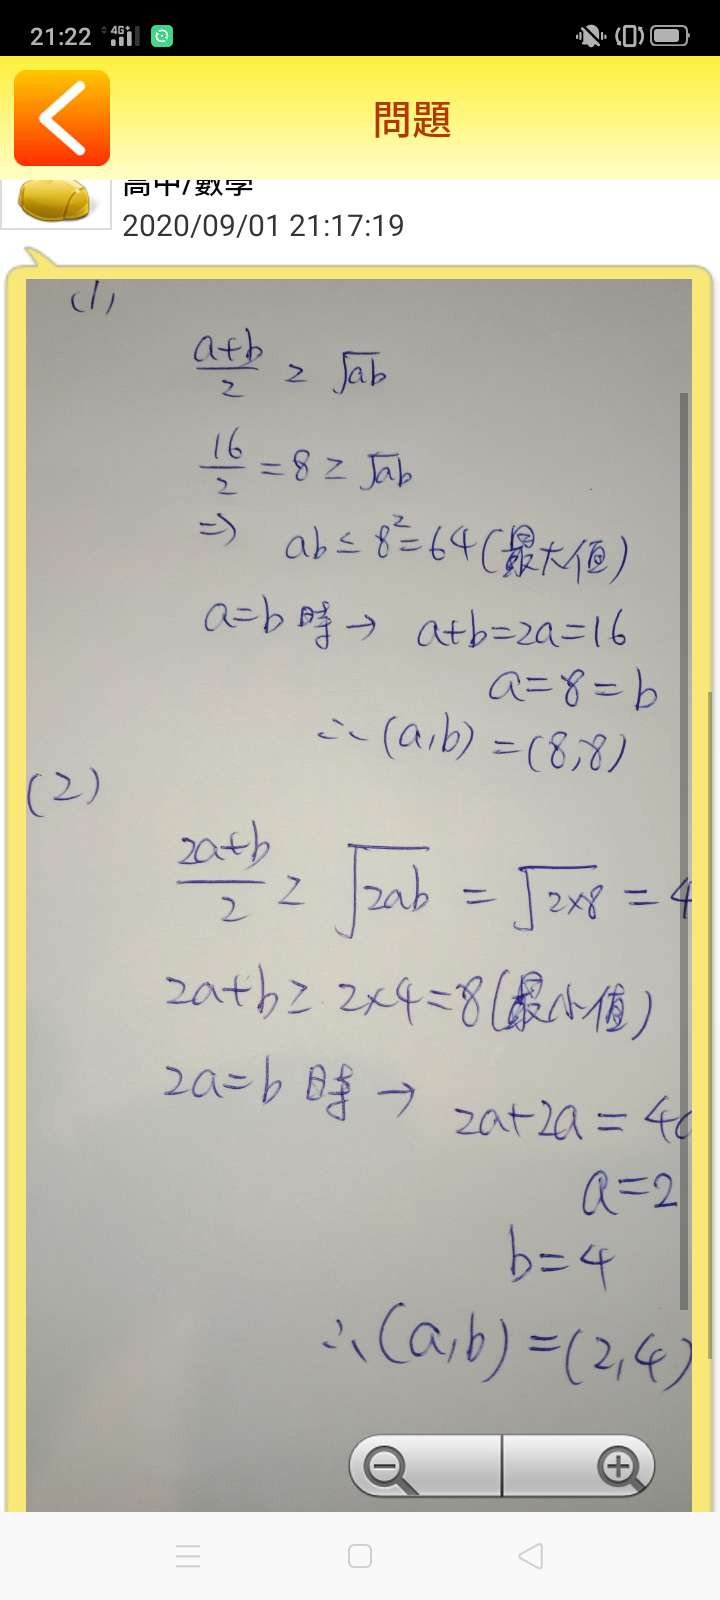 21:22 4G+
問題
高中/數學
2020/09/01 21:17:19
(1)
a+b/2 ≥ √ab
16/2 = 8 ≥ √ab
⇒ ab ≤ 8² = 64 (最大值)
a=b 時 → a+b=2a=16
a=8=b
∴ (a,b) = (8,8)
(2)
2a+b/2 ≥ √2ab = √2×8 = 4
2a+b ≥ 2×4=8 (最小值)
2a=b 時 → 2a+2a = 4
a=2
b=4
∴ (a,b) = (2,4)